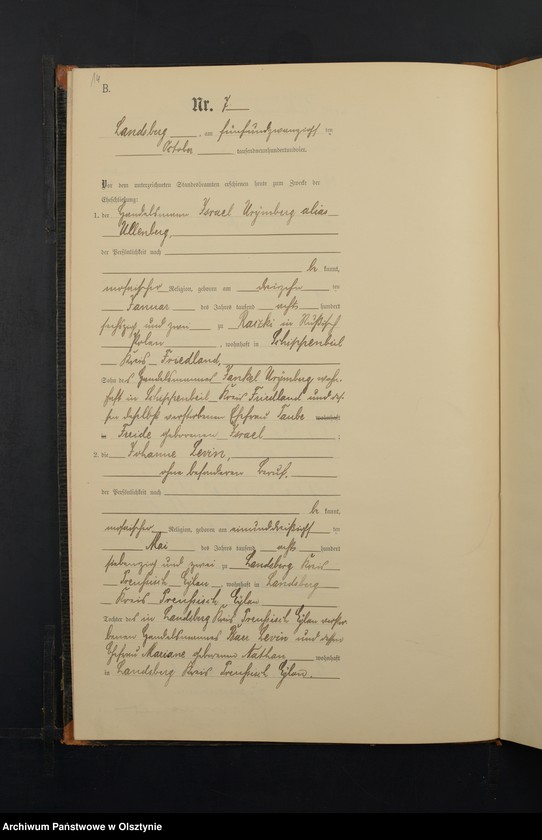 14
B.
Nr. 7
Landsberg, am fünfundzwanzigsten
October tausendneunhundertundeins.
Vor dem unterzeichneten Standesbeamten erschienen heute zum Zweck der
Eheschließung:
1. der Handelsmann Israel Urymberg alias
Ullenberg,
der Persönlichkeit nach
be kannt,
mosaischer Religion, geboren am dreizehn ten
Januar des Jahres tausend acht hundert
sechszig und zwei zu Raczki in Russisch
Polen, wohnhaft in Schippenbeil
Kreis Friedland,
Sohn des Handelsmannes Jankel Urymberg wohn-
haft in Schippenbeil Kreis Friedland und des-
sen daselbst verstorbenen Ehefrau Taube wohnhaft
in Freide geborenen Israel ;
2. die Johanne Levin,
ohne besonderen Beruf,
der Persönlichkeit nach
be kannt,
mosaischer Religion, geboren am einunddreißigst ten
Mai des Jahres tausend acht hundert
siebenzig und zwei zu Landsberg Kreis
Preußisch Eylau, wohnhaft in Landsberg
Kreis Preußisch Eylau
Tochter des in Landsberg Kreis Preußisch Eylau verstor-
benen Handelsmannes Levin und dessen
Ehefrau Mariane geborenen Nathan wohnhaft
in Landsberg Kreis Preußisch Eylau.
Archiwum Państwowe w Olsztynie